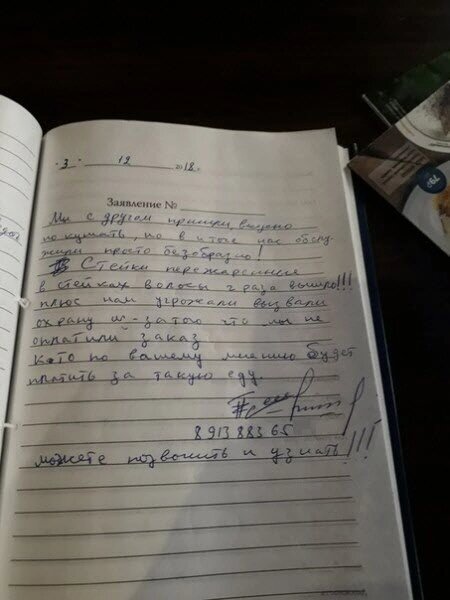 "3" 12 2018 г.
Заявление №
Мы с другом пришли вкусно
покушать, но в итоге нас обслу-
жили просто безобразно!
Стейки пережаренные
в стейках волосы 2 раза вышло!!!
плюс нам угрожали вызвали
охрану из-за того что мы не
оплатили заказ
Кто по вашему мнению будет
платить за такую еду.
891388365
можете позвонить и узнать!!!